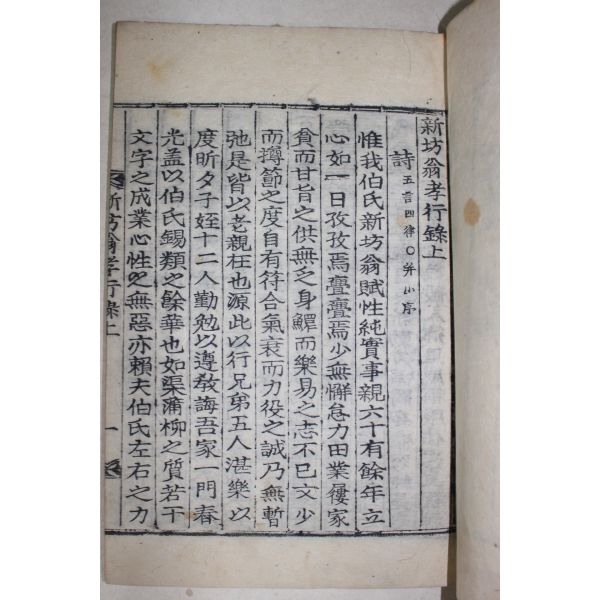 新坊翁孝行錄上
詩 五言四律○并小序
惟我伯氏新坊翁賦性純實事親六十有餘年立
心如一日孜孜焉亹亹焉少無懈怠力田業屨家
貧而甘旨之供無乏身鰥而樂易之志不已文少
而撙節之度自有符合氣衰而力役之誠乃無暫
弛是皆以老親在也源此以行兄弟五人湛樂以
度昕夕子姪十二人勤勉以遵敎誨吾家一門春
光盖以伯氏錫類之餘華也如渠蒲柳之質若干
文字之成業心性之無惡亦賴夫伯氏左右之力
新坊翁孝行錄上 一